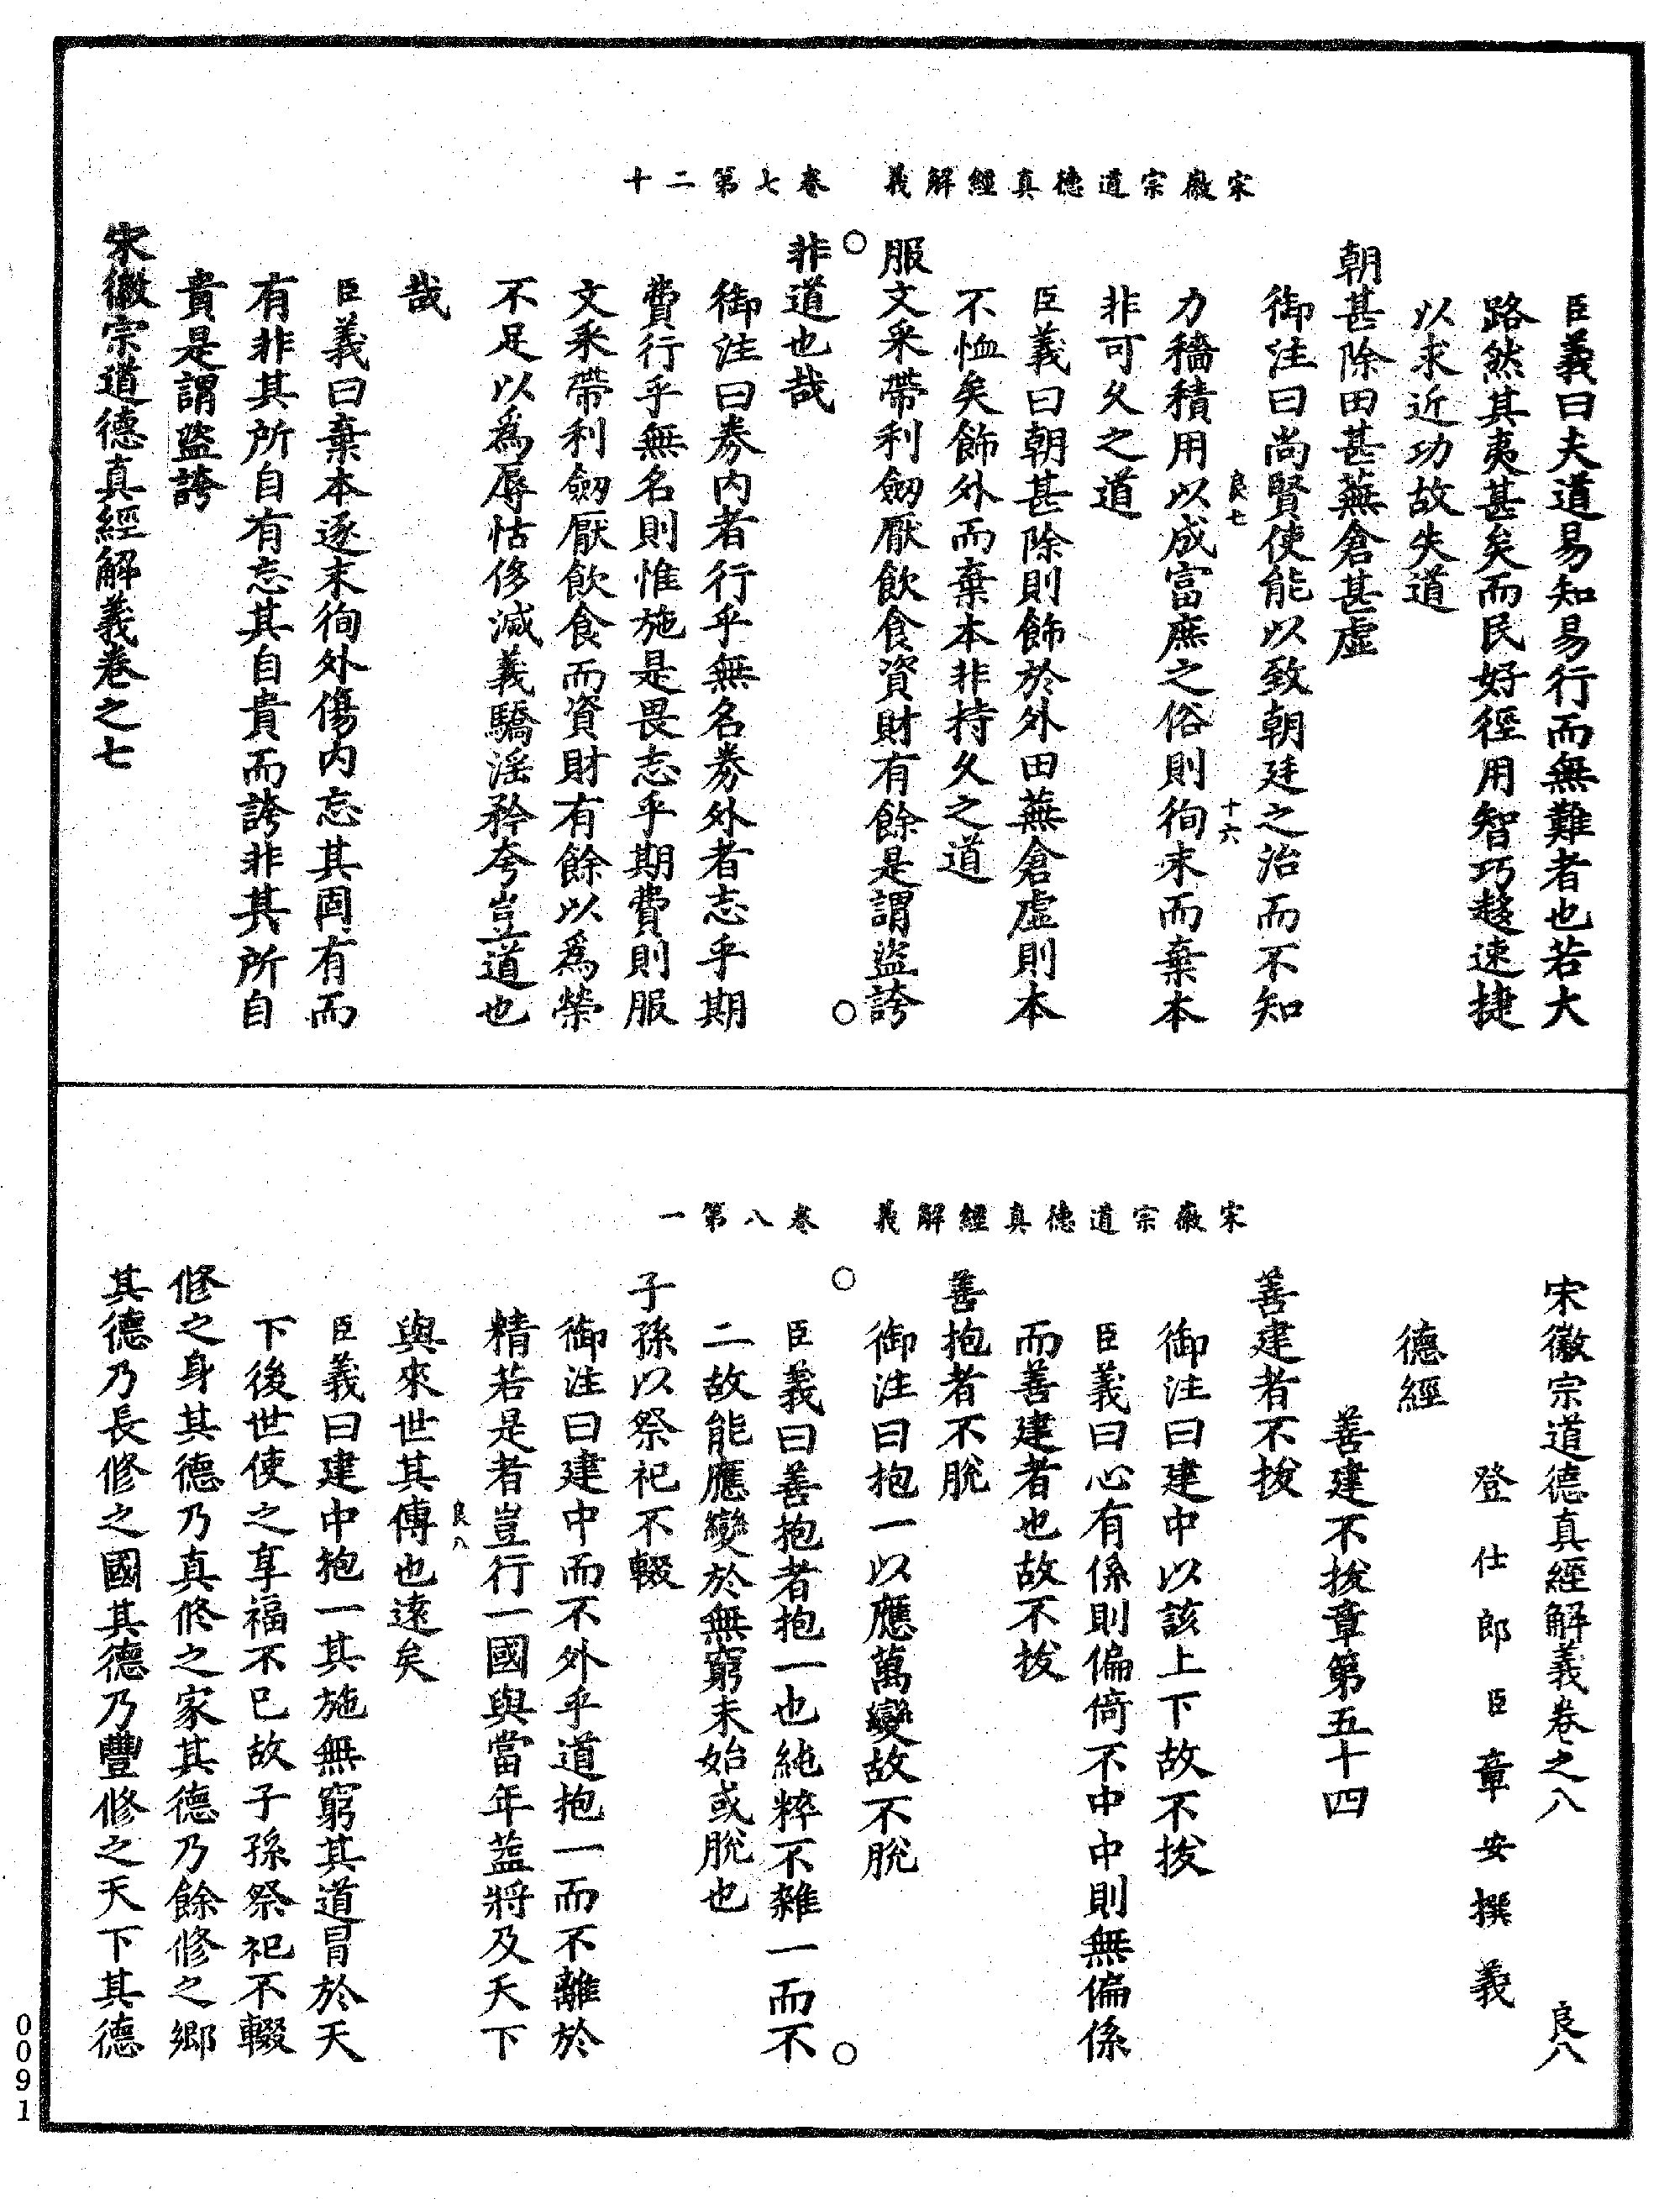 宋徽宗道德真經解義　卷七第二十
臣義曰夫道易知易行而無難者也若大
路然其夷甚矣而民好徑用智巧趍速捷
以求近功故失道
朝甚除田甚蕪倉甚虛
御注曰尚賢使能以致朝廷之治而不知
良七　十六
力穡積用以成富庶之俗則徇末而棄本
非可久之道
臣義曰朝甚除則飾於外田蕪倉虛則本
不恤矣飾外而棄本非持久之道
服文采帶利劒厭飲食資財有餘是謂盜誇
○　○
非道也哉
御注曰券內者行乎無名券外者志乎期
費行乎無名則惟施是畏志乎期費則服
文采帶利劒厭飲食而資財有餘以爲榮
不足以爲辱怙侈滅義驕淫矜夸豈道也
哉
臣義曰棄本逐末徇外傷內忘其固有而
有非其所自有忘其自貴而誇非其所自
貴是謂盜誇
宋徽宗道德真經解義卷之七
宋徽宗道德真經解義　卷八第一
宋徽宗道德真經解義卷之八　良八
登仕郎臣章安撰義
德經
善建不拔章第五十四
善建者不拔
御注曰建中以該上下故不拔
臣義曰心有係則偏倚不中中則無偏係
而善建者也故不拔
善抱者不脫
御注曰抱一以應萬變故不脫
○　○
臣義曰善抱者抱一也純粹不雜一而不
二故能應變於無窮未始或脫也
子孫以祭祀不輟
御注曰建中而不外乎道抱一而不離於
精若是者豈行一國與當年蓋將及天下
良八
與來世其傳也遠矣
臣義曰建中抱一其施無窮其道冒於天
下後世使之享福不已故子孫祭祀不輟
修之身其德乃真修之家其德乃餘修之鄉
其德乃長修之國其德乃豐修之天下其德
0091